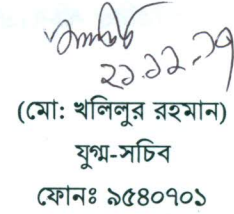 ২১.১২.১৭
(মো: খলিলুর রহমান)
যুগ্ম-সচিব
ফোনঃ ৯৫৪০৭০১